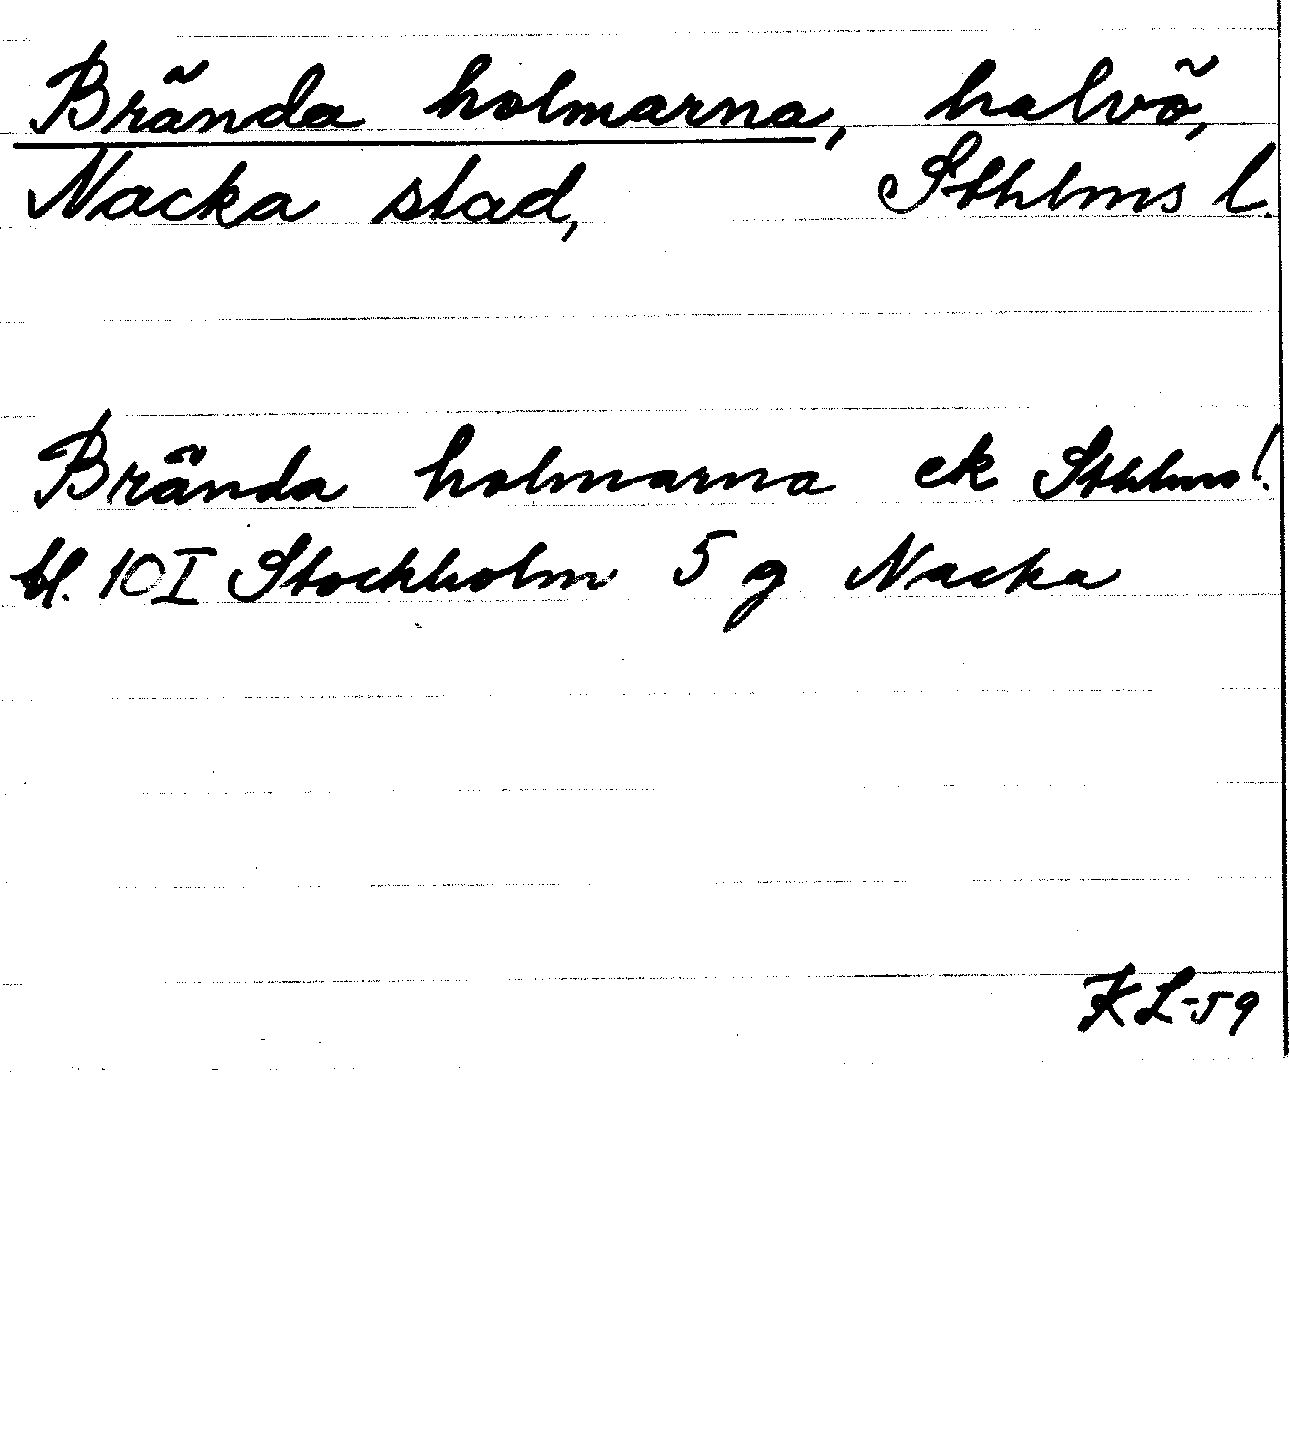 Brända holmarna, halvö,
Nacka stad, Sthlms l.
Brända holmarna ek Sthlms l.
bl. 10 I Stockholm 5 g Nacka
KL-59